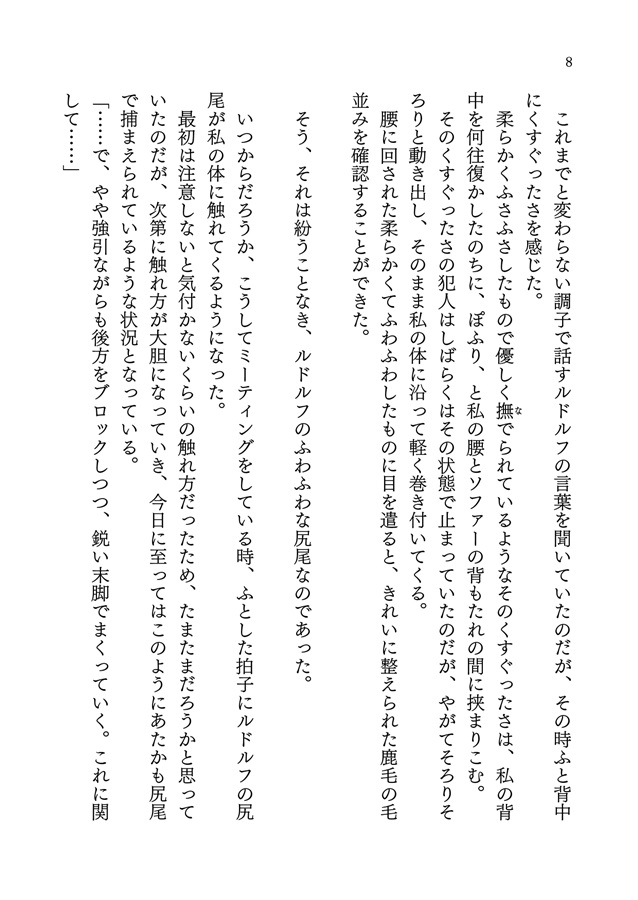 8
これまでと変わらない調子で話すルドルフの言葉を聞いていたのだが、その時ふと背中
にくすぐったさを感じた。
柔らかくふさふさしたもので優しく撫でられているようなそのくすぐったさは、私の背
中を何往復かしたのちに、ぽふり、と私の腰とソファーの背もたれの間に挟まりこむ。
そのくすぐったさの犯人はしばらくはその状態で止まっていたのだが、やがてそろりそ
ろりと動き出し、そのまま私の体に沿って軽く巻き付いてくる。
腰に回された柔らかくてふわふわしたものに目を遣ると、きれいに整えられた鹿毛の毛
並みを確認することができた。
そう、それは紛うことなき、ルドルフのふわふわな尻尾なのであった。
いつからだろうか、こうしてミーティングをしている時、ふとした拍子にルドルフの尻
尾が私の体に触れてくるようになった。
最初は注意しないと気付かないくらいの触れ方だったため、たまたまだろうかと思って
いたのだが、次第に触れ方が大胆になっていき、今日に至ってはこのようにあたかも尻尾
で捕まえられているような状況となっている。
「……で、やや強引ながらも後方をブロックしつつ、鋭い末脚でまくっていく。これに関
して……」